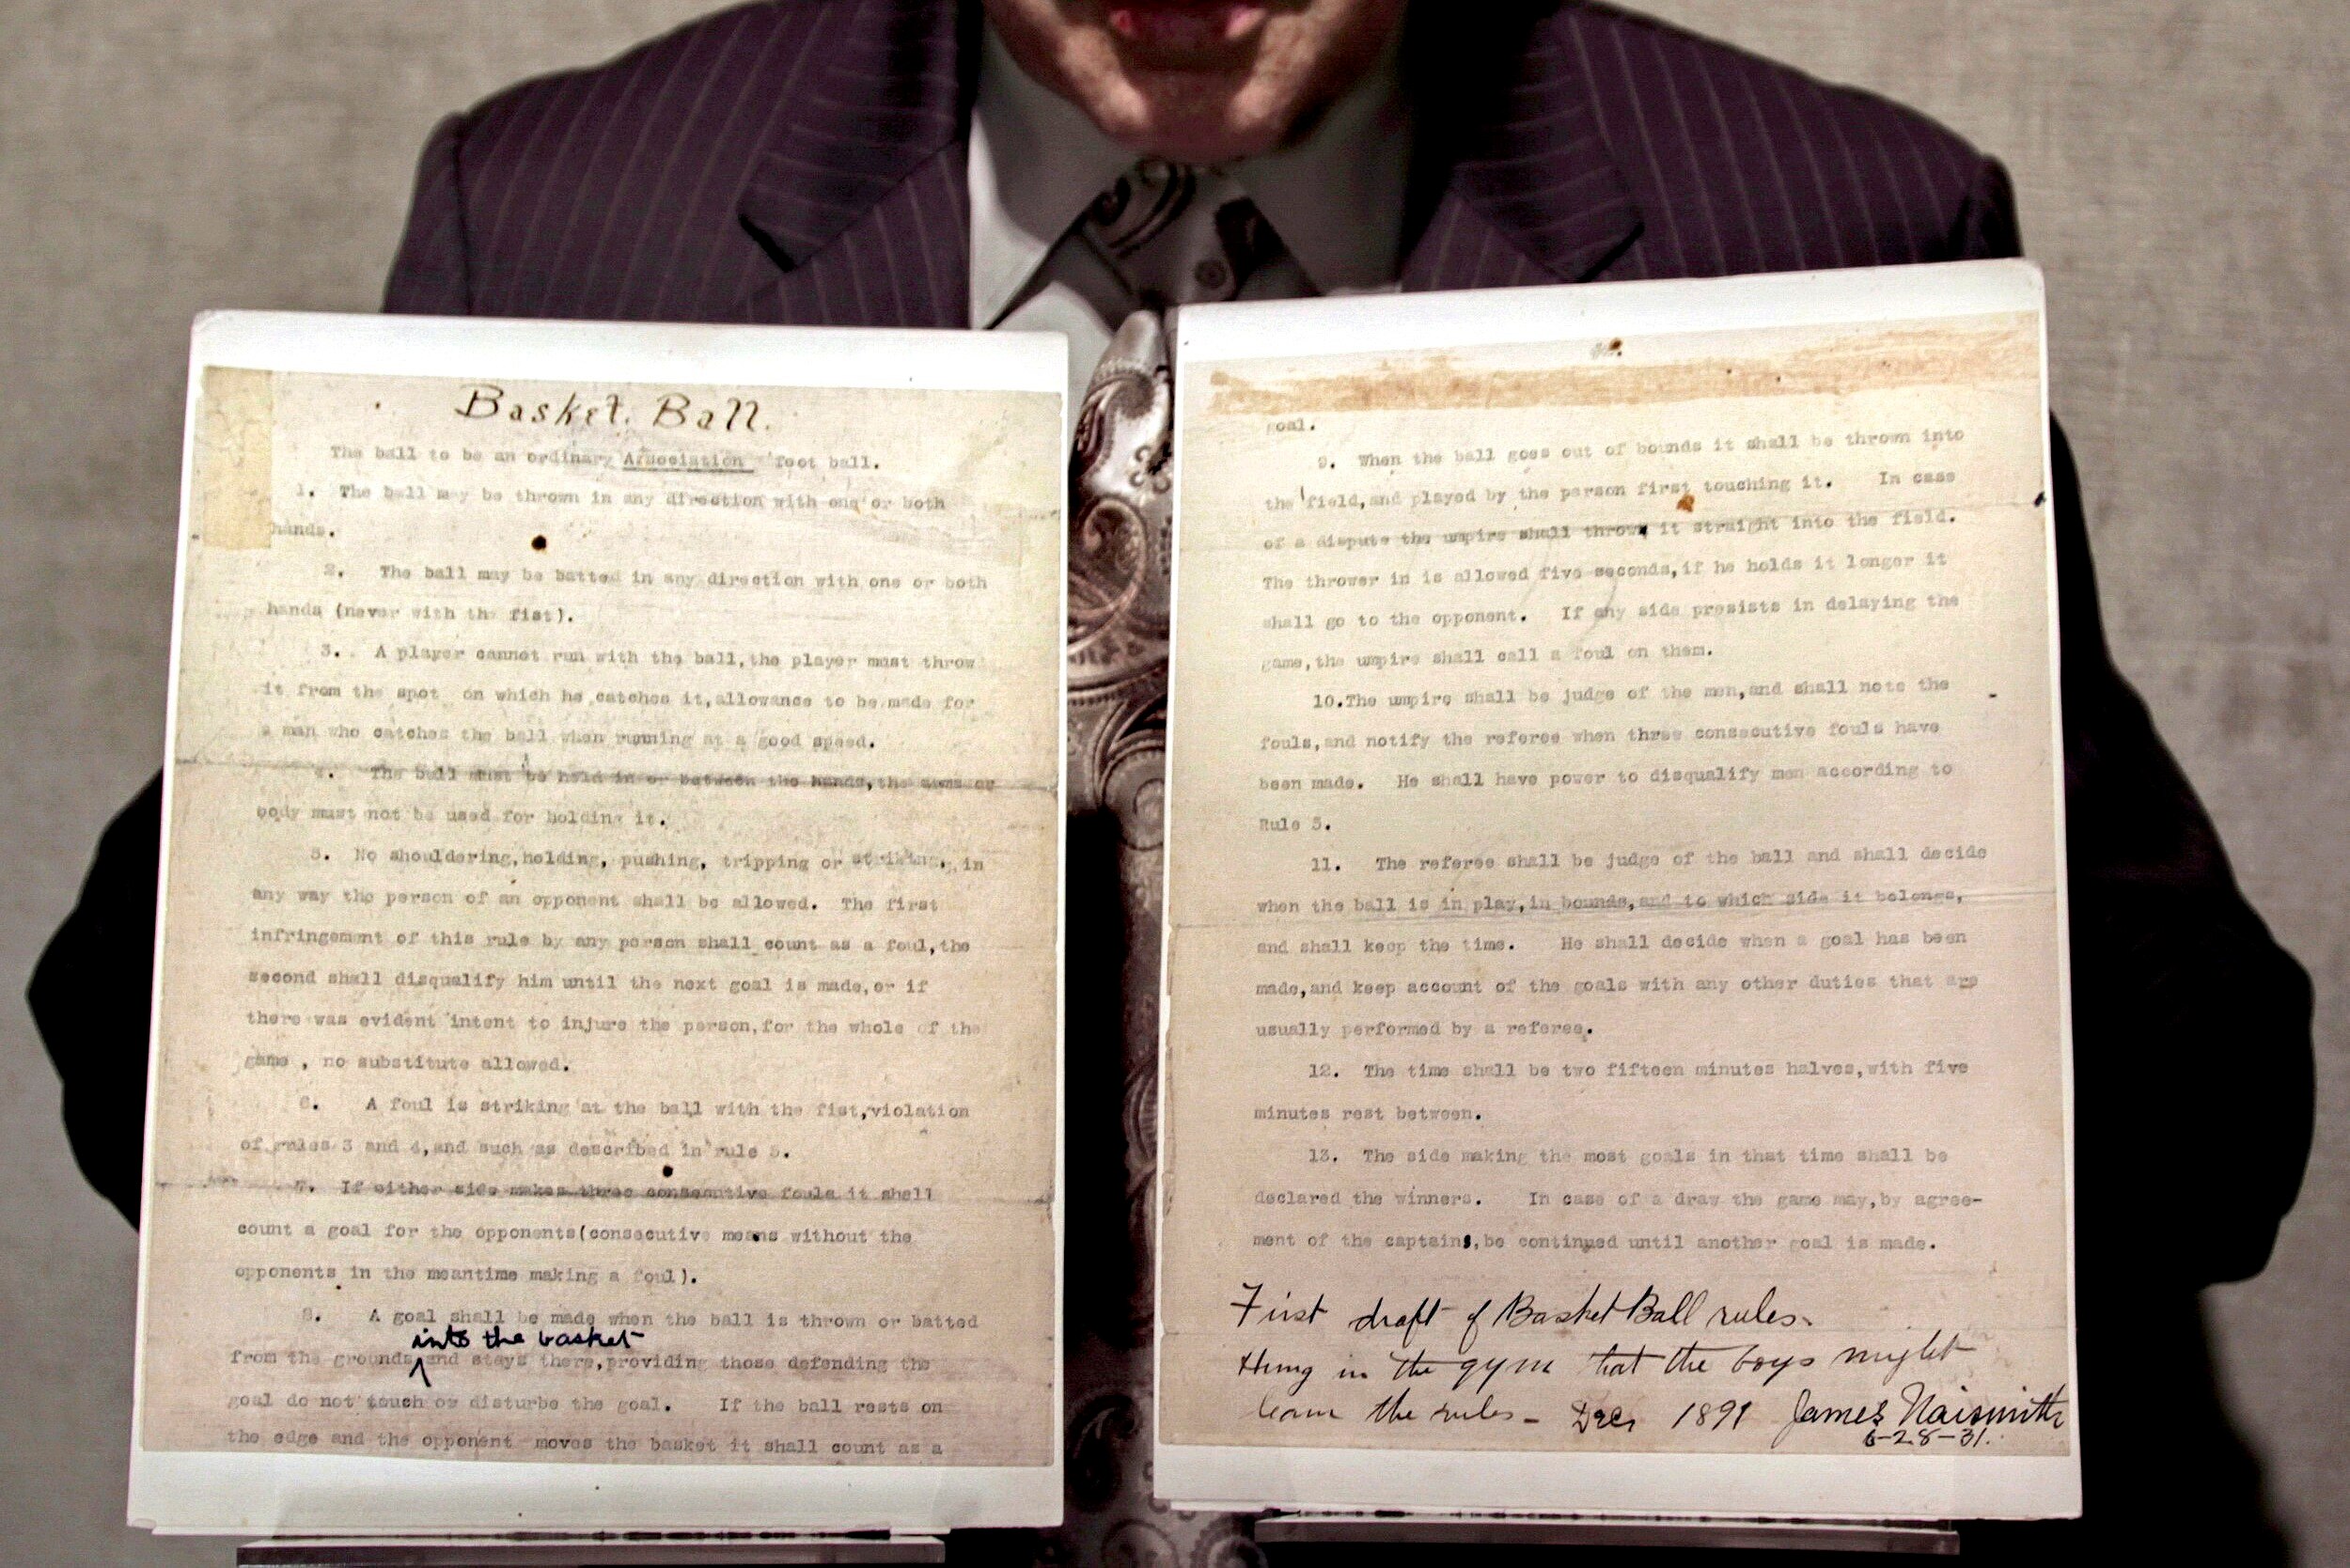 Basket. Ball.
The ball to be an ordinary Association foot ball.
1. The ball may be thrown in any direction with one or both
hands.
2. The ball may be batted in any direction with one or both
hands (never with the fist).
3. A player cannot run with the ball,the player must throw
it from the spot on which he catches it,allowance to be made for
a man who catches the ball when running at a good speed.
4. The ball must be held in or between the hands,the arms or
body must not be used for holding it.
5. No shouldering,holding, pushing, tripping or striking, in
any way the person of an opponent shall be allowed. The first
infringement of this rule by any person shall count as a foul,the
second shall disqualify him until the next goal is made,or if
there was evident intent to injure the person,for the whole of the
game , no substitute allowed.
6. A foul is striking at the ball with the fist,violation
of rules 3 and 4,and such as described in rule 5.
7. If either side makes three consecutive fouls it shall
count a goal for the opponents(consecutive means without the
opponents in the meantime making a foul).
8. A goal shall be made when the ball is thrown or batted
into the basket
from the grounds and stays there,providing those defending the
goal do not touch or disturbe the goal. If the ball rests on
the edge and the opponent moves the basket it shall count as a
goal.
9. When the ball goes out of bounds it shall be thrown into
the field,and played by the person first touching it. In case
of a dispute the umpire shall throw it straight into the field.
The thrower in is allowed five seconds,if he holds it longer it
shall go to the opponent. If any side presists in delaying the
game,the umpire shall call a foul on them.
10.The umpire shall be judge of the men,and shall note the
fouls,and notify the referee when three consecutive fouls have
been made. He shall have power to disqualify men according to
Rule 5.
11. The referee shall be judge of the ball and shall decide
when the ball is in play,in bounds,and to which side it belongs,
and shall keep the time. He shall decide when a goal has been
made,and keep account of the goals with any other duties that are
usually performed by a referee.
12. The time shall be two fifteen minutes halves,with five
minutes rest between.
13. The side making the most goals in that time shall be
declared the winners. In case of a draw the game may,by agree-
ment of the captains,be continued until another goal is made.
First draft of Basket Ball rules.
Hung in the gym that the boys might
learn the rules - Dec 1891 James Naismith
6-28-31.